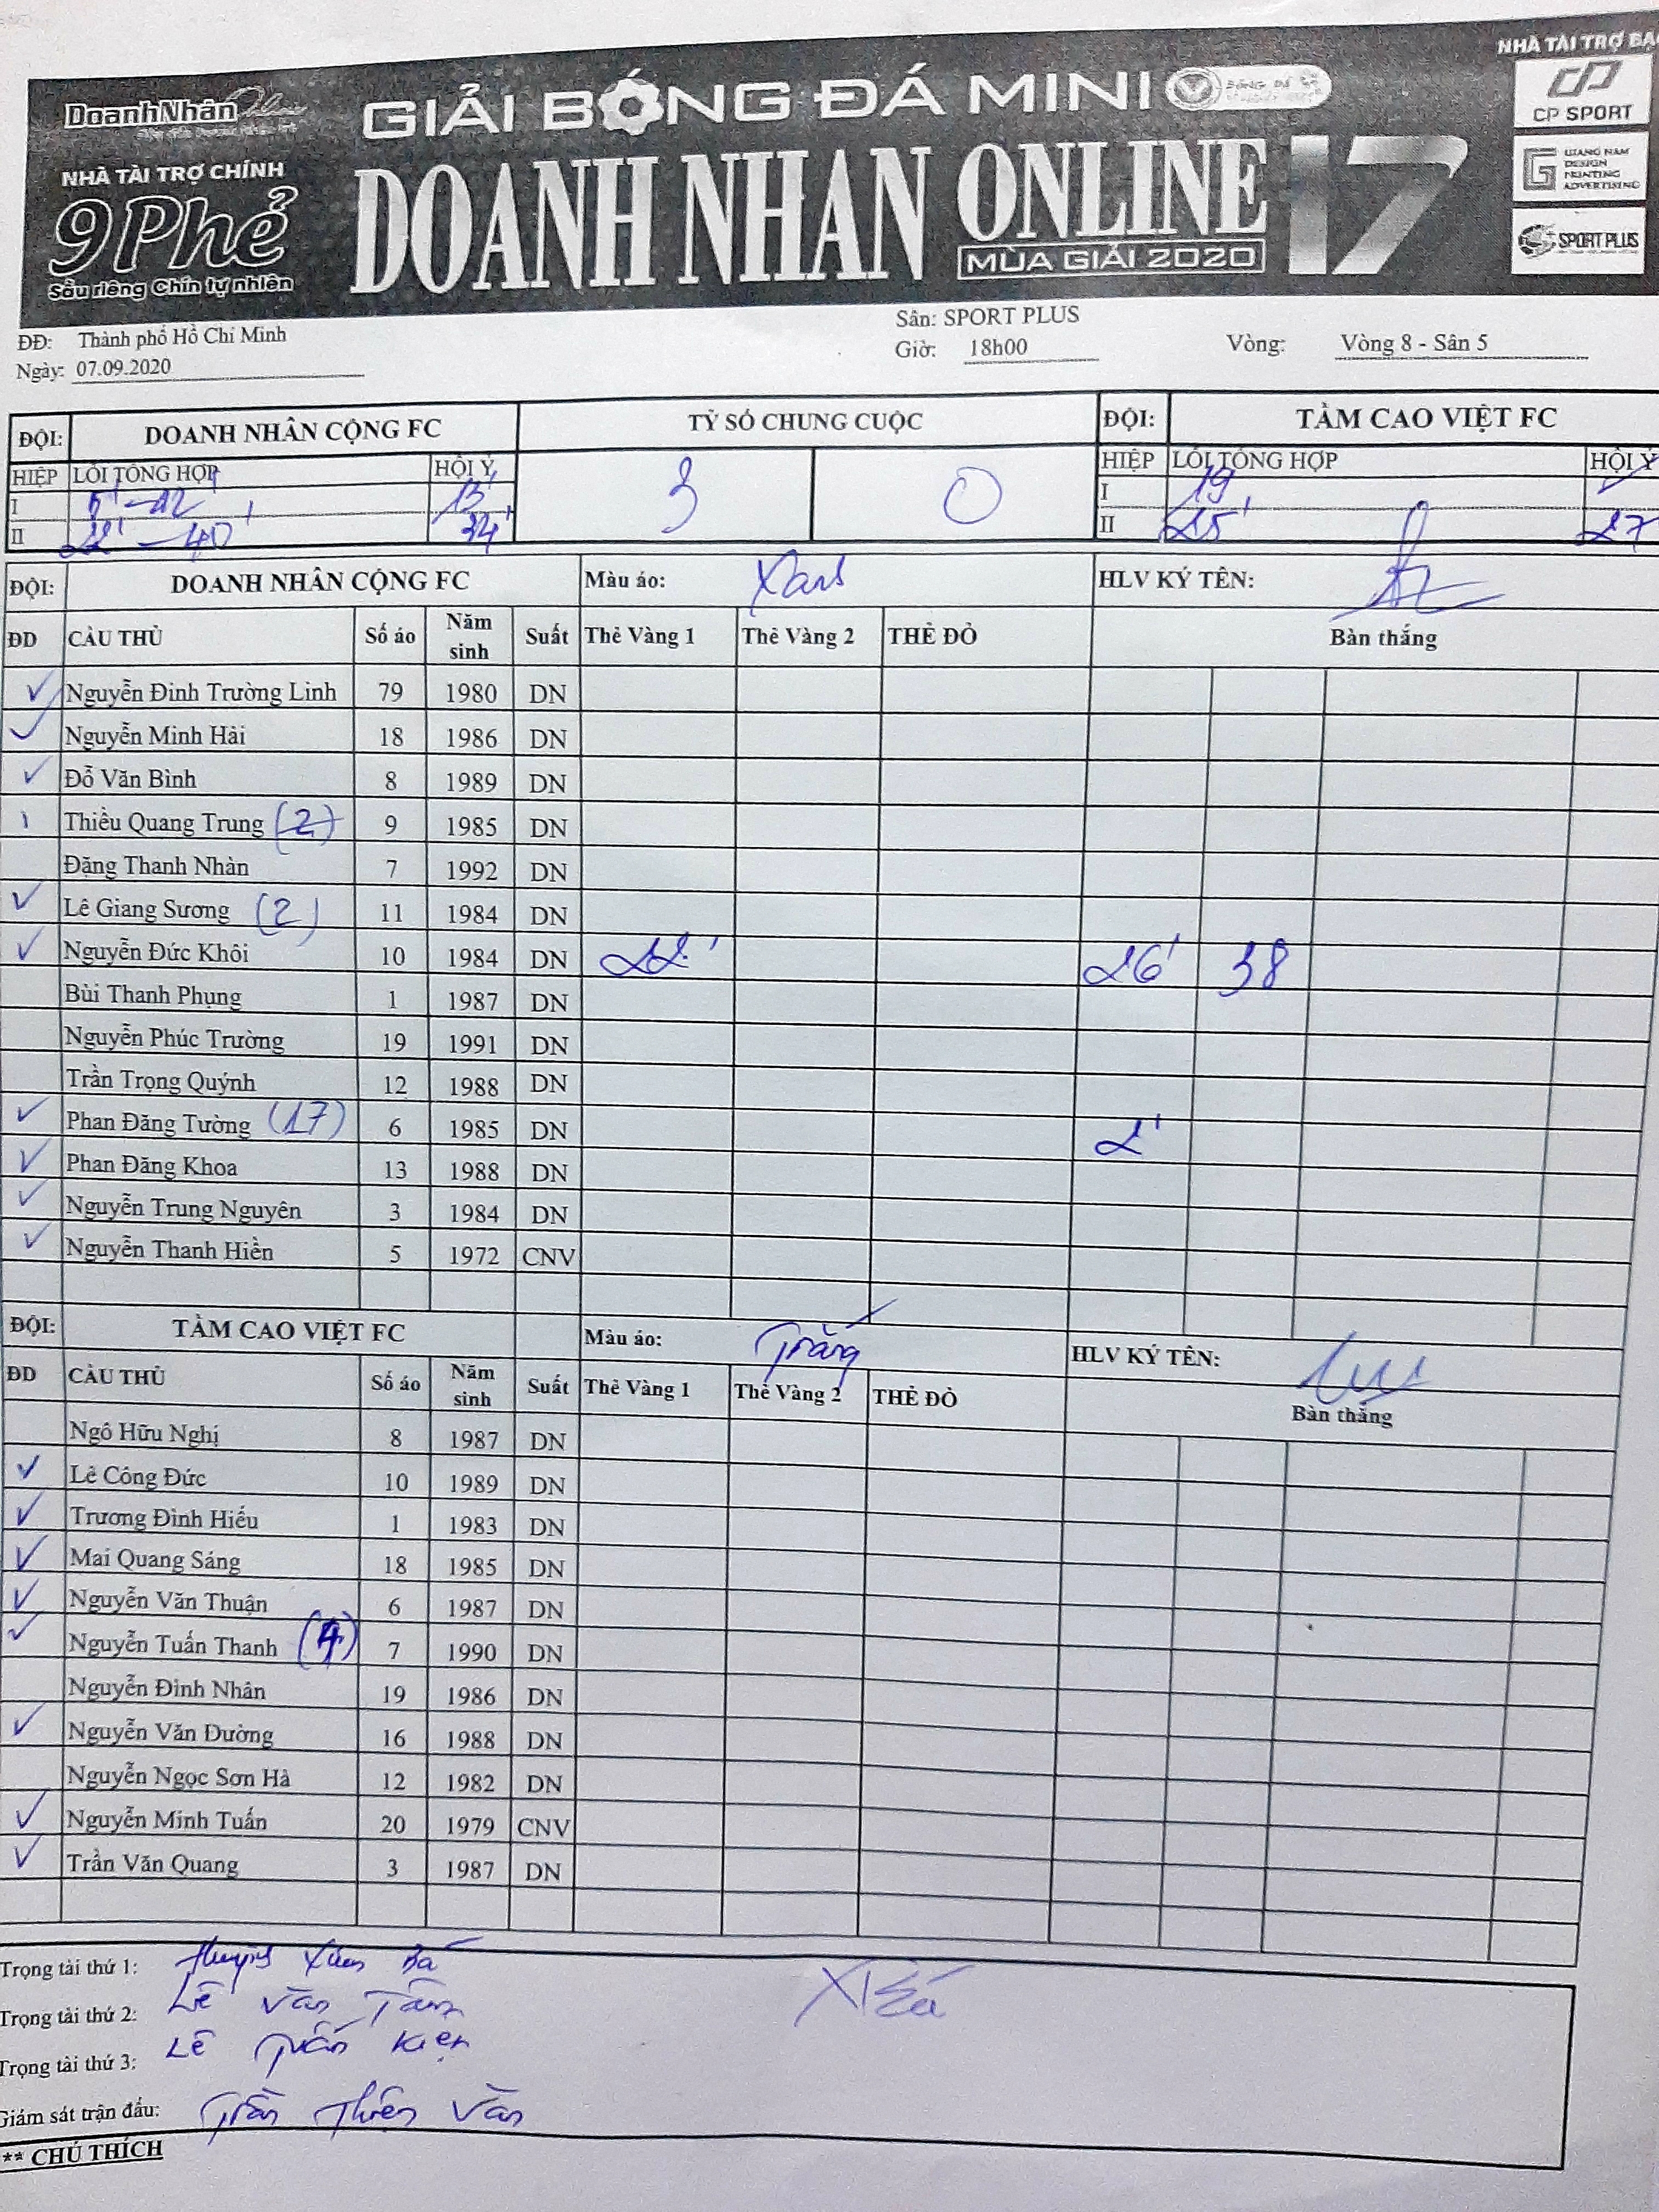 NHÀ TÀI TRỢ BẠ
DoanhNhân Plus
GIẢI BÓNG ĐÁ MINI
CP SPORT
NHÀ TÀI TRỢ CHÍNH
9Phẻ
Sầu riêng Chín tự nhiên
DOANH NHÂN ONLINE 17
MÙA GIẢI 2020
GIANG NAM
DESIGN
PRINTING
ADVERTISING
SPORT PLUS
ĐĐ: Thành phố Hồ Chí Minh
Sân: SPORT PLUS
Ngày: 07.09.2020
Giờ: 18h00
Vòng: Vòng 8 - Sân 5
ĐỘI: DOANH NHÂN CỘNG FC TỶ SỐ CHUNG CUỘC ĐỘI: TẦM CAO VIỆT FC
HIỆP LỖI TỔNG HỢP HỘI Ý 3 0 HIỆP LỖI TỔNG HỢP HỘI Ý
I 5' - 12' 13' I 19
II 22' - 40' 34' II 25' 27
ĐỘI: DOANH NHÂN CỘNG FC Màu áo: Xanh HLV KÝ TÊN:
ĐD CẦU THỦ Số áo Năm sinh Suất Thẻ Vàng 1 Thẻ Vàng 2 THẺ ĐỎ Bàn thắng
Nguyễn Đình Trường Linh 79 1980 DN
Nguyễn Minh Hải 18 1986 DN
Đỗ Văn Bình 8 1989 DN
Thiều Quang Trung (2) 9 1985 DN
Đặng Thanh Nhàn 7 1992 DN
Lê Giang Sương (2) 11 1984 DN
Nguyễn Đức Khôi 10 1984 DN 22' 26' 38
Bùi Thanh Phụng 1 1987 DN
Nguyễn Phúc Trường 19 1991 DN
Trần Trọng Quýnh 12 1988 DN
Phan Đăng Tường (17) 6 1985 DN 2'
Phan Đăng Khoa 13 1988 DN
Nguyễn Trung Nguyên 3 1984 DN
Nguyễn Thanh Hiền 5 1972 CNV
ĐỘI: TẦM CAO VIỆT FC Màu áo: Trắng HLV KÝ TÊN:
ĐD CẦU THỦ Số áo Năm sinh Suất Thẻ Vàng 1 Thẻ Vàng 2 THẺ ĐỎ Bàn thắng
Ngô Hữu Nghị 8 1987 DN
Lê Công Đức 10 1989 DN
Trương Đình Hiếu 1 1983 DN
Mai Quang Sáng 18 1985 DN
Nguyễn Văn Thuận 6 1987 DN
Nguyễn Tuấn Thanh 7 1990 DN
Nguyễn Đình Nhân 19 1986 DN
Nguyễn Văn Đường 16 1988 DN
Nguyễn Ngọc Sơn Hà 12 1982 DN
Nguyễn Minh Tuấn 20 1979 CNV
Trần Văn Quang 3 1987 DN
Trọng tài thứ 1: Huỳnh Xuân Bá
Trọng tài thứ 2: Lê Văn Tâm
Trọng tài thứ 3: Lê Tuấn Kiện
Giám sát trận đấu: Trần Thiện Văn
** CHÚ THÍCH